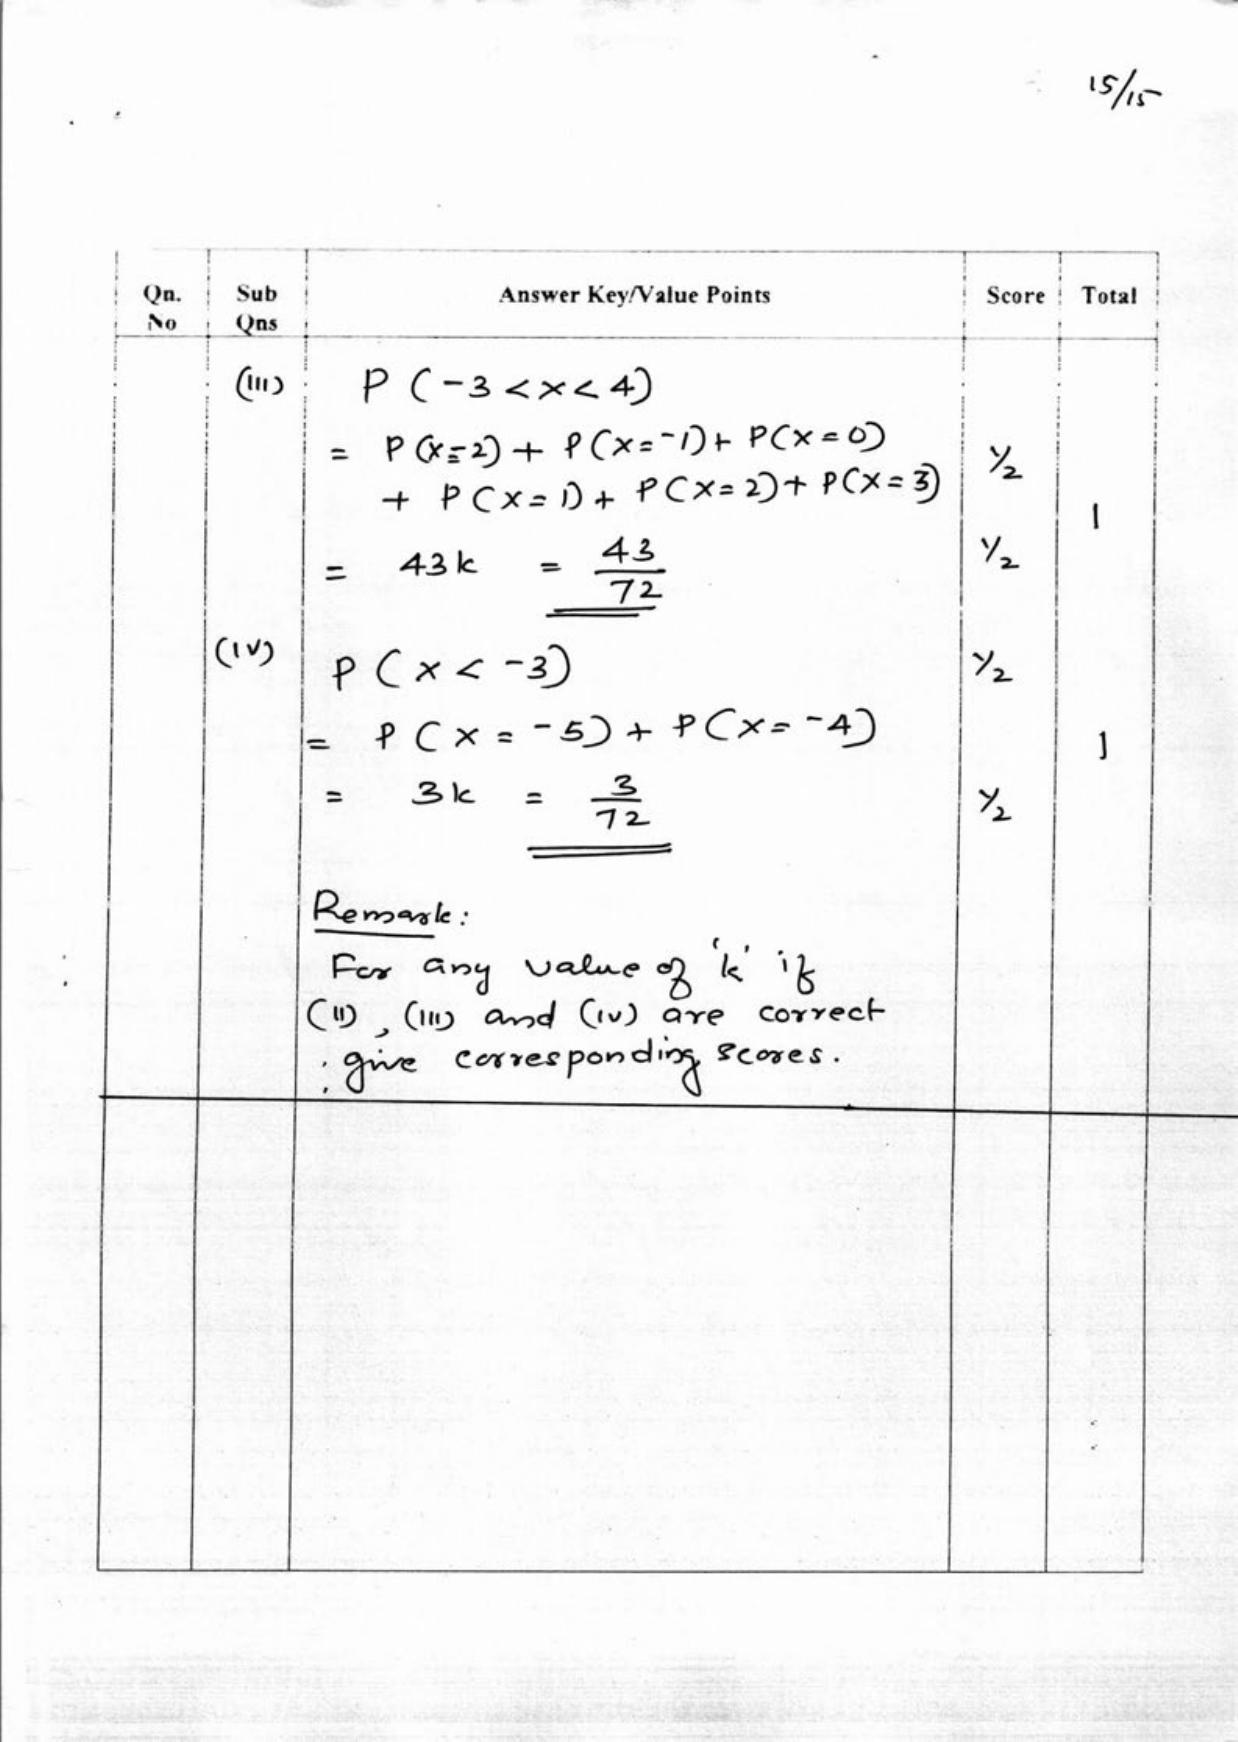 15/15
Qn. No
Sub Qns
Answer Key/Value Points
Score
Total
(III) P(-3 < x < 4)
= P(x=-2) + P(x=-1) + P(x=0) 1/2
+ P(x=1) + P(x=2) + P(x=3)
1
= 43k = 43/72 1/2
(IV) P(x < -3) 1/2
= P(x = -5) + P(x = -4) 1
= 3k = 3/72 1/2
Remark:
For any value of 'k' if
(II), (III) and (IV) are correct
give corresponding scores.